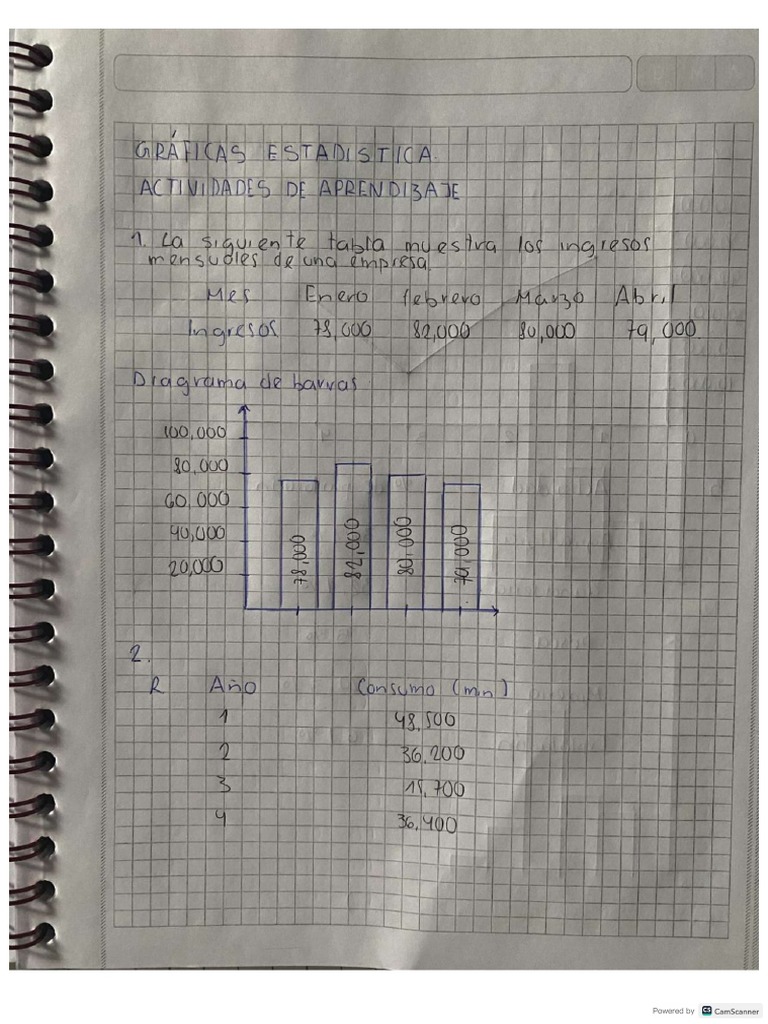 GRÁFICAS ESTADISTICA.
ACTIVIDADES DE APRENDIZAJE
1. La siguiente tabla muestra los ingresos
mensuales de una empresa
Mes Enero febrero Marzo Abril
Ingresos 78,000 82,000 80,000 79,000.
Diagrama de barras
100,000
80,000
60,000
40,000
20,000
78,000
82,000
80,000
79,000
2.
R Año Consumo (min)
1 48,500
2 36,200
3
4 36,400
Powered by CS CamScanner